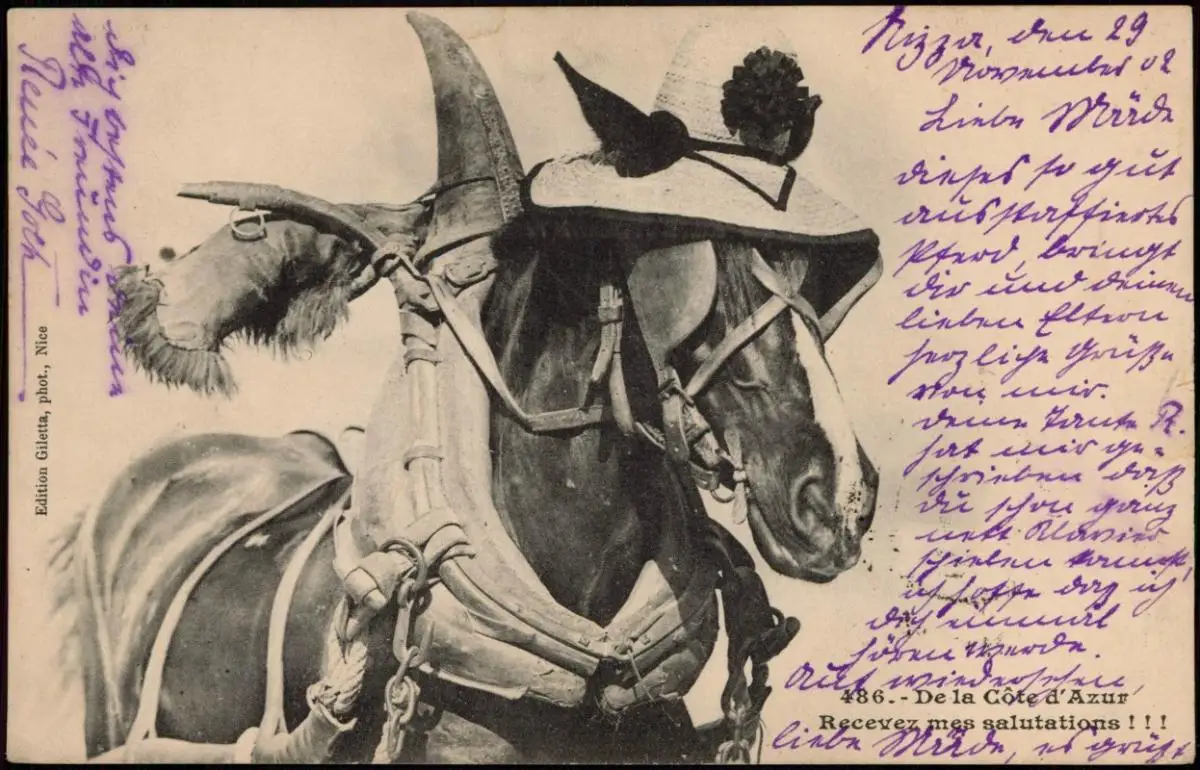 Nizza, den 29
November 02
Liebe Märde
dieses so gut
ausstaffiertes
Pferd, bringt
dir und deinen
lieben Eltern
herzliche Grüße
von mir.
deine Tante R.
hat mir ge-
schrieben daß
du schon ganz
nett Klavier
spielen kannst,
ich hoffe daß ich
dich einmal
hören werde.
Auf wiedersehen,
liebe Märde, es grüßt
dich bestens deine
alte Freundin
Renée
486. - De la Côte d'Azur
Recevez mes salutations ! ! !
Edition Giletta, phot., Nice